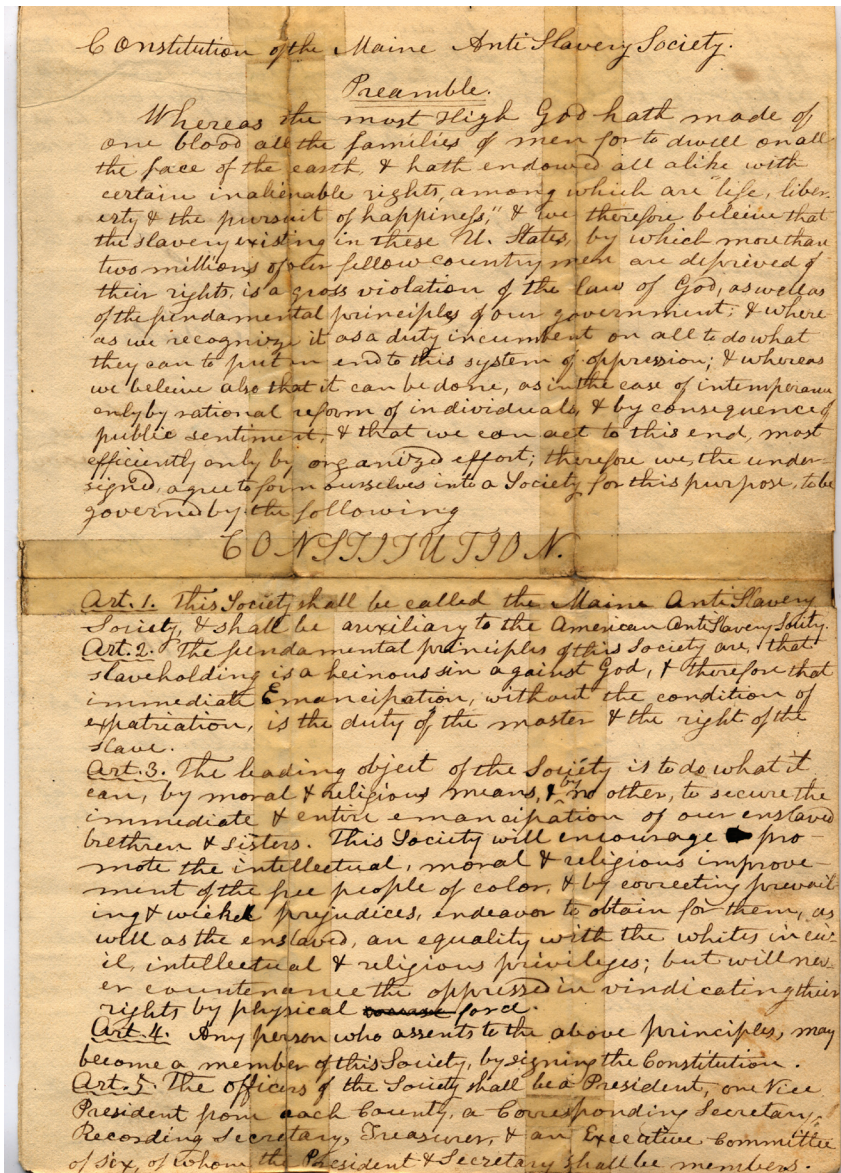 Constitution of the Maine Anti Slavery Society.
Preamble.
Whereas the most High God hath made of
one blood all the families of men for to dwell on all
the face of the earth, & hath endowed all alike with
certain inalienable rights, among which are "life, liber-
erty & the pursuit of happiness," & we therefore beleive that
the slavery existing in these U. States, by which more than
two millions of our fellow country men are deprieved of
their rights, is a gross violation of the law of God, as well as
of the fundamental principles of our government; & where-
as we recognize it as a duty incumbent on all to do what
they can to put an end to this system of oppression; & whereas
we beleive also that it can be done, as in the case of intemperance
only by rational reform of individuals, & by consequence of
public sentiment, & that we can act to this end, most
efficiently only by organized effort; therefore we, the under-
signed, agree to form ourselves into a Society for this purpose, to be
governed by the following
CONSTITUTION.
Art. 1. This Society shall be called the Maine Anti Slavery
Society, & shall be auxiliary to the American Anti Slavery Society.
Art. 2. The fundamental principles of this Society are, that
slaveholding is a heinous sin against God, & therefore that
immediate Emancipation, without the condition of
expatriation, is the duty of the master & the right of the
slave.
Art. 3. The leading object of the Society is to do what it
can, by moral & religious means, & by no other, to secure the
immediate & entire emancipation of our enslaved
brethren & sisters. This Society will encourage pro-
mote the intellectual, moral & religious improve-
ment of the free people of color, & by correcting prevail-
ing & wicked prejudices, endeavor to obtain for them, as
well as the enslaved, an equality with the whites in civ-
il, intellectual & religious privileges; but will nev-
er countenance the oppressed in vindicating their
rights by physical
Art. 4. Any person who assents to the above principles, may
become a member of this Society, by signing the Constitution.
Art. 5. The officers of the Society shall be a President, one Vice
President from each County, a Corresponding Secretary,
Recording Secretary, Treasurer, & an Executive Committee
of six, of whom the President & Secretary shall be members.